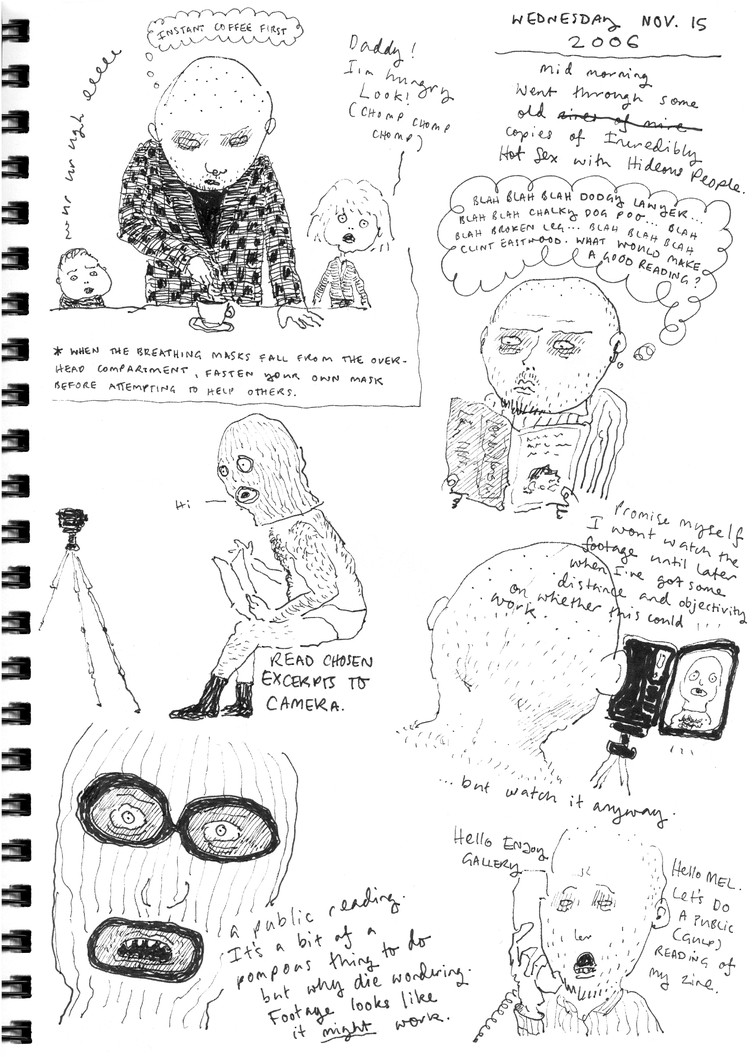 INSTANT COFFEE FIRST
Daddy!
I'm hungry
Look!
(CHOMP CHOMP
CHOMP)
* WHEN THE BREATHING MASKS FALL FROM THE OVER-
HEAD COMPARTMENT, FASTEN YOUR OWN MASK
BEFORE ATTEMPTING TO HELP OTHERS.
WEDNESDAY NOV. 15
2006
Mid morning
Went through some
old zines of mine
copies of Incredibly
Hot Sex with Hideous People.
BLAH BLAH BLAH DODGY LAWYER...
BLAH BLAH CHALKY DOG POO... BLAH
BLAH BROKEN LEG... BLAH BLAH BLAH
CLINT EASTWOOD. WHAT WOULD MAKE
A GOOD READING?
Hi
READ CHOSEN
EXCERPTS TO
CAMERA.
Promise myself
I wont watch the
footage until later
when I've got some
distance and objectivity
on whether this could
work
...but watch it anyway.
a public reading.
It's a bit of a
pompous thing to do
but why die wondering.
Footage looks like
it might work.
Hello Enjoy
GALLERY
Hello MEL.
Let's DO
A PUBLIC
(GULP)
READING of
my zine.